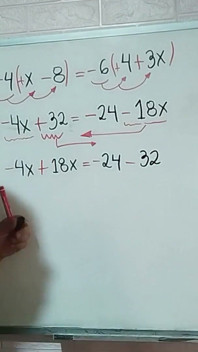 -4(+x - 8) = -6(+4 + 3x)
-4x + 32 = -24 - 18x
-4x + 18x = -24 - 32